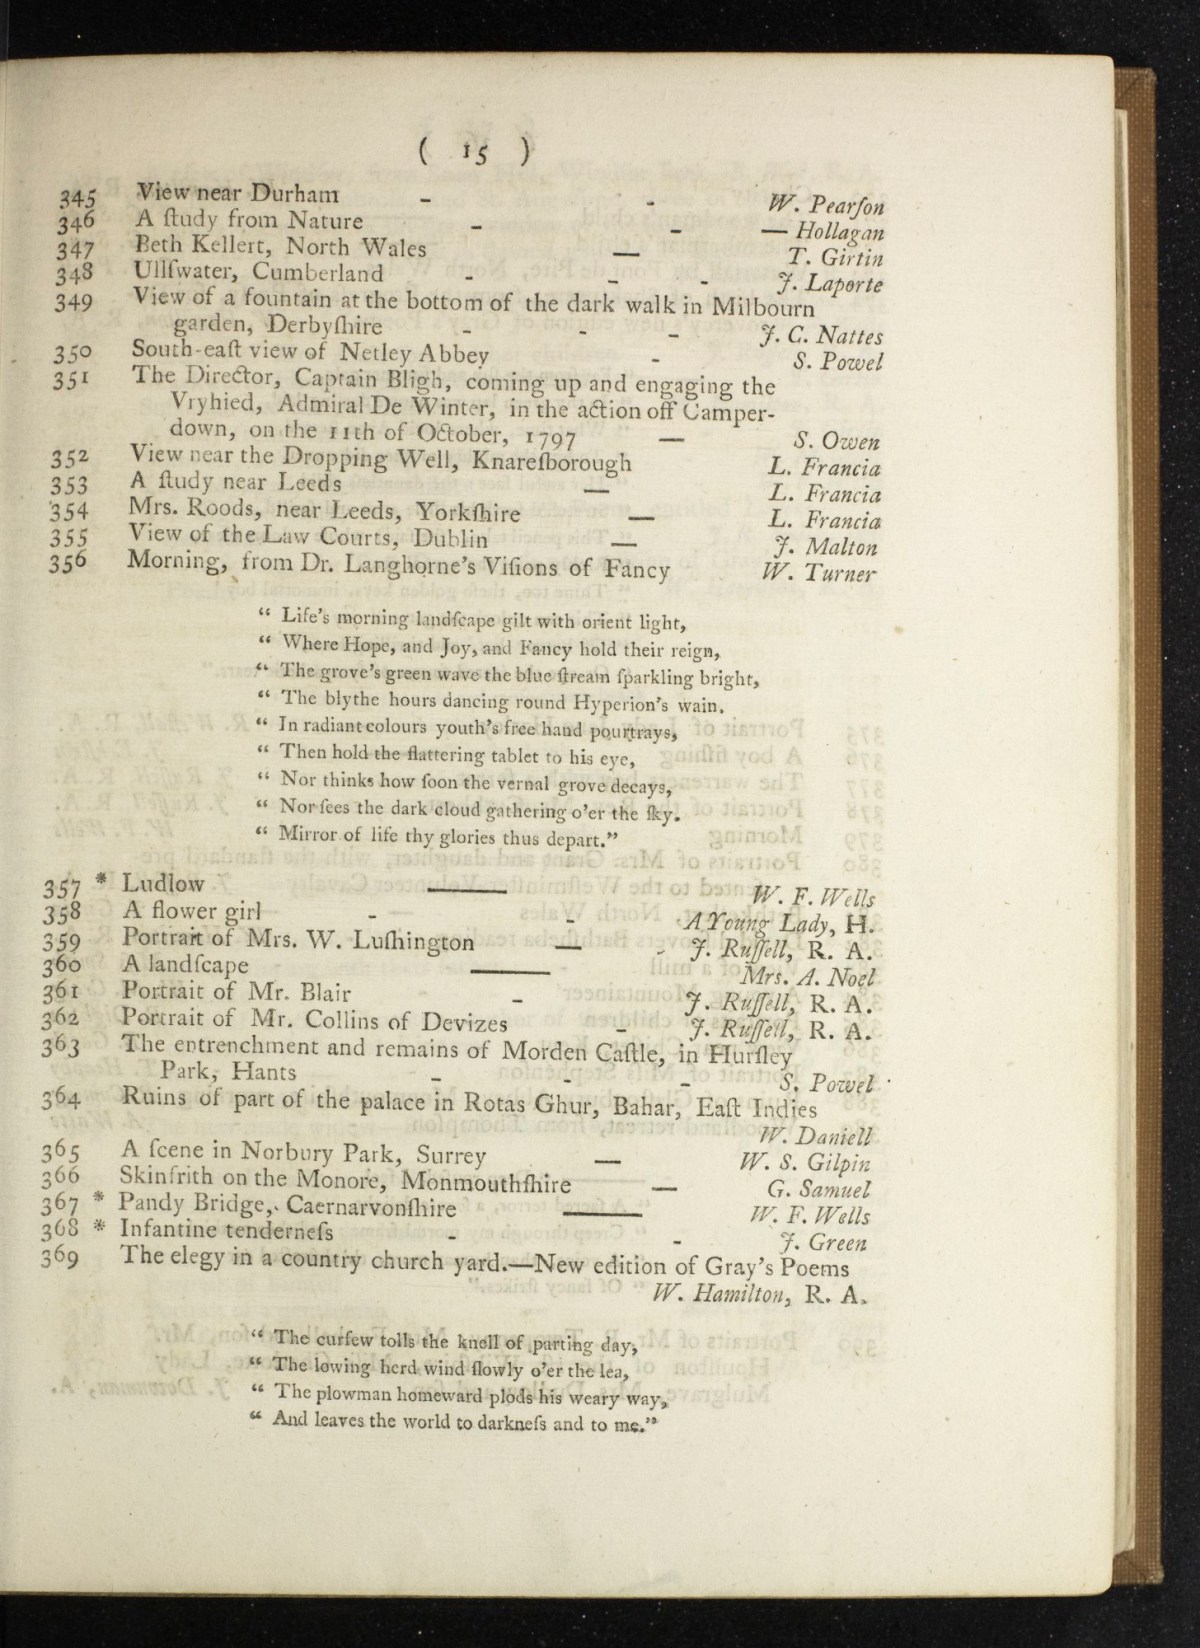 ( 15 )
345 View near Durham - - W. Pearſon
346 A ſtudy from Nature - - — Hollagan
347 Beth Kellert, North Wales — T. Girtin
348 Ullſwater, Cumberland - - - J. Laporte
349 View of a fountain at the bottom of the dark walk in Milbourn
garden, Derbyſhire - - - J. C. Nattes
350 South-eaſt view of Netley Abbey - S. Powel
351 The Director, Captain Bligh, coming up and engaging the
Vryhied, Admiral De Winter, in the action off Camper-
down, on the 11th of October, 1797 — S. Owen
352 View near the Dropping Well, Knareſborough L. Francia
353 A ſtudy near Leeds — L. Francia
354 Mrs. Roods, near Leeds, Yorkſhire — L. Francia
355 View of the Law Courts, Dublin — J. Malton
356 Morning, from Dr. Langhorne's Viſions of Fancy W. Turner
“ Life's morning landſcape gilt with orient light,
“ Where Hope, and Joy, and Fancy hold their reign,
“ The grove's green wave the blue ſtream ſparkling bright,
“ The blythe hours dancing round Hyperion's wain.
“ In radiant colours youth's free hand pourtrays,
“ Then hold the flattering tablet to his eye,
“ Nor thinks how ſoon the vernal grove decays,
“ Nor ſees the dark cloud gathering o'er the ſky.
“ Mirror of life thy glories thus depart.”
357 * Ludlow — W. F. Wells
358 A flower girl - - A Young Lady, H.
359 Portrait of Mrs. W. Luſhington — - J. Ruſſell, R. A.
360 A landſcape — Mrs. A. Noel
361 Portrait of Mr. Blair - J. Ruſſell, R. A.
362 Portrait of Mr. Collins of Devizes - J. Ruſſell, R. A.
363 The entrenchment and remains of Morden Caſtle, in Hurſley
Park, Hants - - - S. Powel
364 Ruins of part of the palace in Rotas Ghur, Bahar, Eaſt Indies
W. Daniell
365 A ſcene in Norbury Park, Surrey — W. S. Gilpin
366 Skinfrith on the Monore, Monmouthſhire — G. Samuel
367 * Pandy Bridge, Caernarvonſhire — W. F. Wells
368 * Infantine tenderneſs - - J. Green
369 The elegy in a country church yard.—New edition of Gray's Poems
W. Hamilton, R. A.
“ The curfew tolls the knell of parting day,
“ The lowing herd wind ſlowly o'er the lea,
“ The plowman homeward plods his weary way,
“ And leaves the world to darkneſs and to me.”